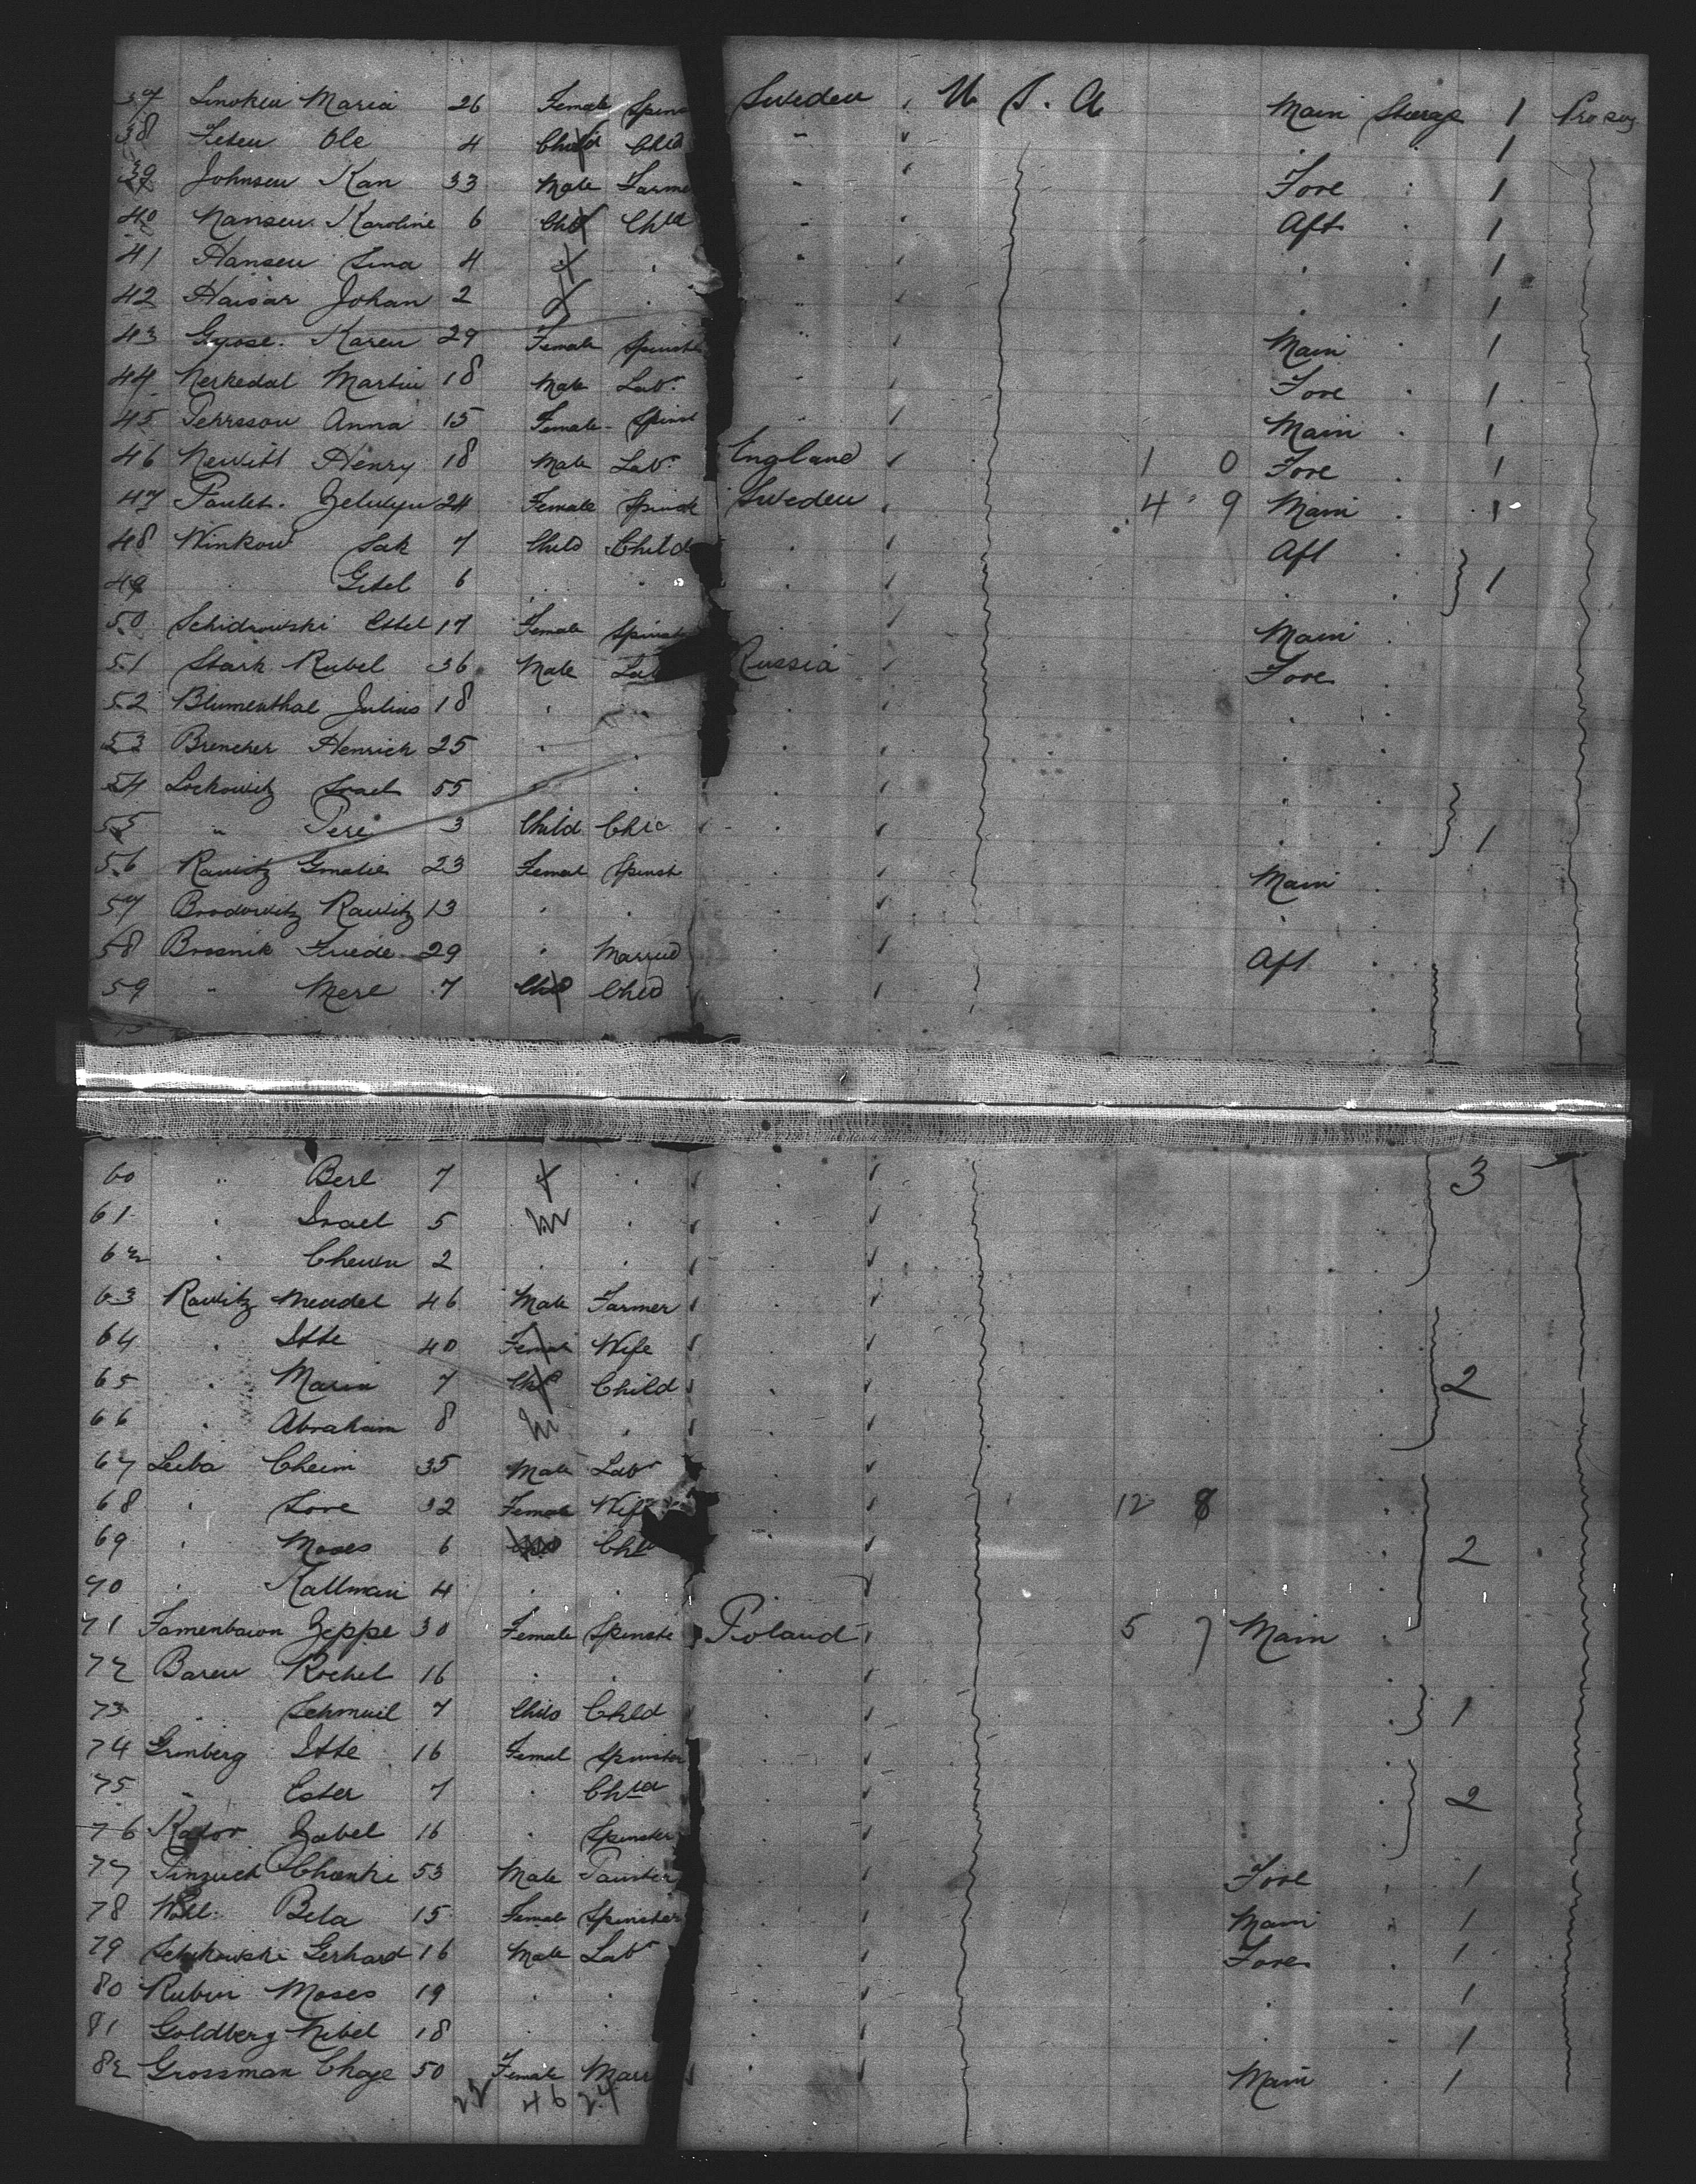 37 Maria 26 Female Spins Sweden U S. A Main Steerage 1
38 Ole 4 Child Chld " 1
39 Johnsen Kan 33 Male Farme " Fore 1
40 Hansen Karoline 6 Chld Chld " Aft 1
41 Hansen Lina 4 1
42 Johan 2 1
43 Karen 29 Female Spinst Main 1
44 Martin 18 Male Labr Fore 1
45 Anna 15 Female Spinst Main 1
46 Newitt Henry 18 Male Labr England 1 0 Fore 1
47 24 Female Spinst Sweden 4 9 Main 1
48 Winkow Sak 7 Child Child Aft
49 " Gitel 6 1
50 Schidrowski Ettel 17 Female Spinst Main
51 Stark Rubel 36 Male Lab Russia Fore
52 Blumenthal Julius 18
53 Brencher Henrich 25
54 Lockowitz Israel 55
55 " Pere 3 Child Chld 1
56 Rawitz 23 Femal Spinst Main
57 Brodowitz Rawitz 13
58 Brosnik Friede 29 " Married Aft
59 " Merl 7 Chld Chld
60 " Berl 7 3
61 " Israel 5
62 " 2
63 Rawitz Mendel 46 Male Farmer
64 " Itte 40 Female Wife
65 " 7 Chld Child 2
66 " Abraham 8
67 Leiba Cheim 35 Male Labr
68 " Sore 32 Female Wife 12 8
69 " Moses 6 Chld 2
70 " Kallman 4
71 Zeppe 30 Female Spinste Poland 5 7 Main
72 Baren Rochel 16
73 " Schmuil 7 Child Chld 1
74 Grinberg Itte 16 Femal Spinster
75 " Ester 7 Chld 2
76 Zabel 16 Spinster
77 53 Male Painter Fore 1
78 Bela 15 Female Spinster Main 1
79 Gerhard 16 Male Labr Fore 1
80 Rubin Moses 19 1
81 Goldberg Nibel 18 1
82 Grossman Chaje 50 Female Marr Main 1
46 24